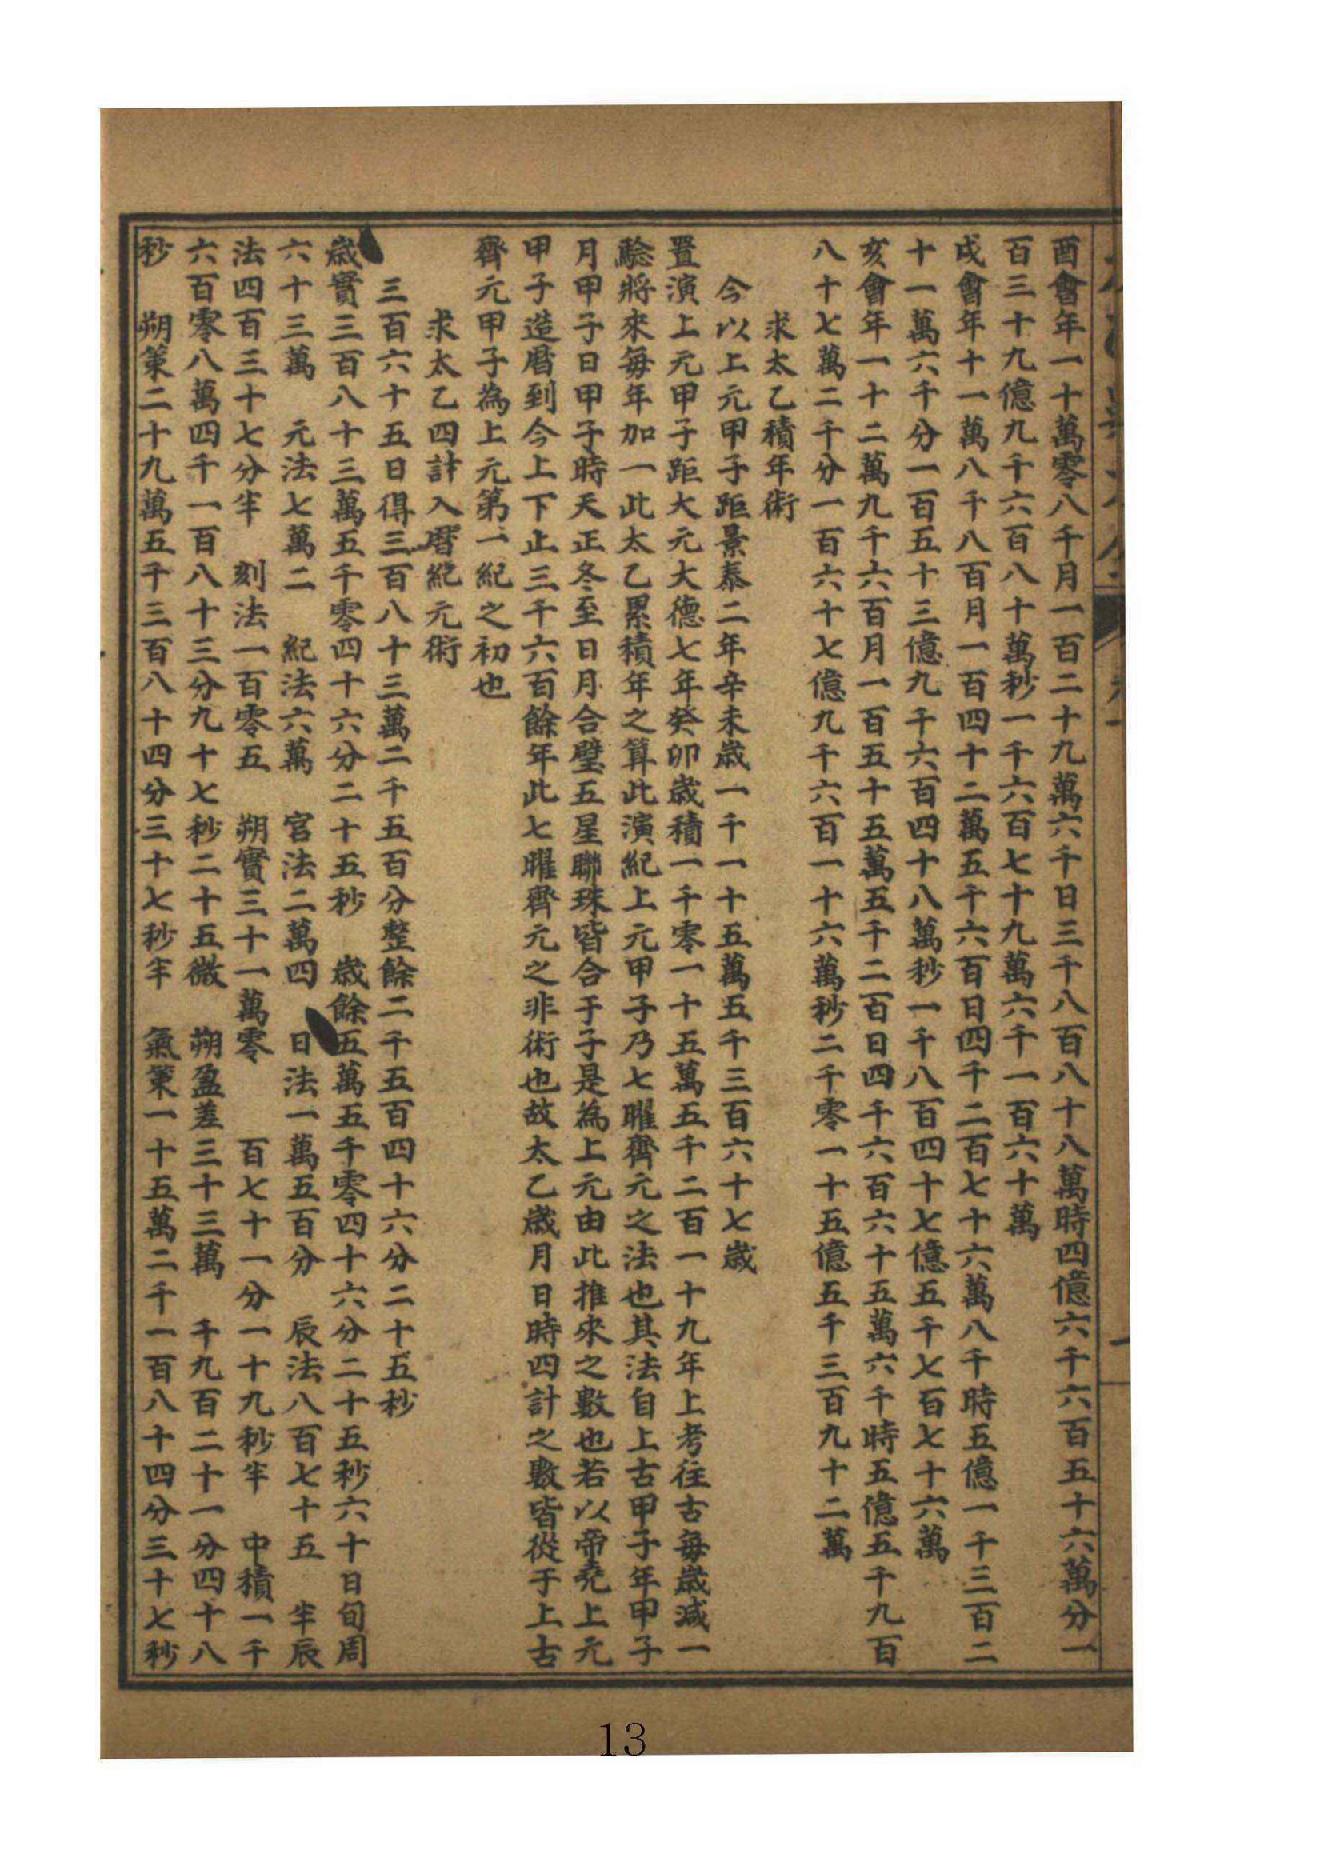 酉會年一十萬零八千月一百二十九萬六千日三千八百八十八萬時四億六千六百五十六萬分一
百三十九億九千六百八十萬秒一千六百七十九萬六千一百六十萬
戌會年十一萬八千八百月一百四十二萬五千六百日四千二百七十六萬八千時五億一千三百二
十一萬六千分一百五十三億九千六百四十八萬秒一千八百四十七億五千七百七十六萬
亥會年一十二萬九千六百月一百五十五萬五千二百日四千六百六十五萬六千時五億五千九百
八十七萬二千分一百六十七億九千六百一十六萬秒二千零一十五億五千三百九十二萬
求太乙積年術
今以上元甲子距景泰二年辛未歲一千一十五萬五千三百六十七歲
置演上元甲子距大元大德七年癸卯歲積一千零一十五萬五千二百一十九年上考往古每歲減一
驗將來每年加一此太乙累積年之算此演紀上元甲子乃七曜齊元之法也其法自上古甲子年甲子
月甲子日甲子時天正冬至日月合璧五星聯珠皆合于子是為上元由此推來之數也若以帝堯上元
甲子造曆到今上下止三千六百餘年此七曜齊元之非術也故太乙歲月日時四計之數皆從于上古
齊元甲子為上元第一紀之初也
求太乙四計入曆紀元術
三百六十五日得三百八十三萬二千五百分整餘二千五百四十六分二十五秒
歲實三百八十三萬五千零四十六分二十五秒 歲餘五萬五千零四十六分二十五秒六十日旬周
六十三萬 元法七萬二 紀法六萬 宮法二萬四 日法一萬五百分 辰法八百七十五 半辰
法四百三十七分半 刻法一百零五 朔實三十一萬零 百七十一分一十九秒半 中積一千
六百零八萬四千一百八十三分九十七秒二十五微 朔盈差三十三萬 千九百二十一分四十八
秒 朔策二十九萬五千三百八十四分三十七秒半 氣策一十五萬二千一百八十四分三十七秒
13